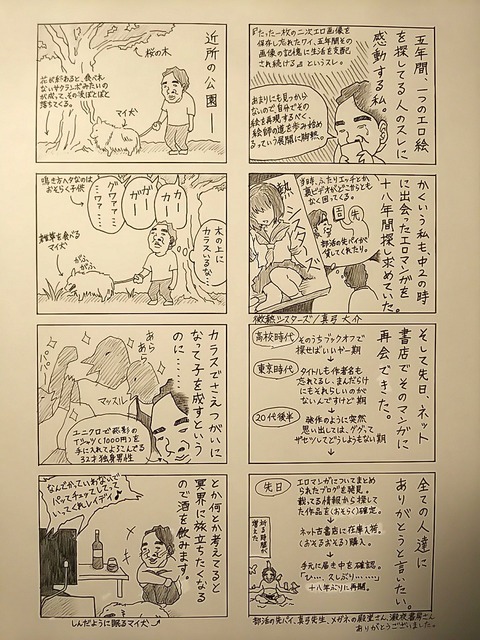 五年間、一つのエロ絵
を探してる人のスレに
感動する私。
『たった一枚の二次エロ画像を
保存し忘れたワイ、五年間その
画像の記憶に生活を支配
され続ける』というスレ。
あまりにも見つから
ないので、自分でその
絵を再現するべく、
絵師の道を歩み始め
るっていう展開に脱帽。
かくいう私も、中2の時
に出会ったエロマンガを
十八年間探し求めていた。
当時、ふたりエッチとか
裏ビデオがどこからとも
なく回ってくる。
部活の先パイが
貸してくれたり。
微熱シスターズ/真弓大介
そして先日、ネット
書店でそのマンガに
再会できた。
高校時代
そのうちブックオフで
探せばいいや―期
東京時代
タイトルも作者名も
忘れてるし、まんだらけ
にもそれらしいのが
ないんですけど期
20代後半
発作のように突然
思い出しては、ググって
ザセツしてどうしようもない期
全ての人達に
ありがとうと言いたい。
先日
エロマンガについてまとめ
られたブログを発見。
載ってる情報から探して
た作品を(おそらく)確定。
ネット古書店に在庫入荷。
(おそるおそる)購入。
手元に届き中を確認。
「ひ…、久しぶり………。」
十八年ぶりに再開。
祈る時間が
増えた
部活の先パイ、真弓先生、メガネの殿堂さん、瀬夜書房さん
ありがとうございました。
近所の公園―
桜の木
花が散ると、食べれ
ないサクランボみたいの
が成って、その次ぽとぽと
落ちてくる。
マイ犬
木の上に
カラスいるな…
カー
カー
ガー
ガー
グワァ…
…ワァ…
鳴き方ヘタなのは
おそらく子供
雑草を食べる
マイ犬
がふ
がふ
カラスでさえつがいに
なって子を成すという
のに……
あら
あら
マッスル
ユニクロで部彫の
Tシャツ(1000円)を
手に入れてよろこんでる
32才独身男性
とか何とか考えてると
冥界に旅立ちたくなる
ので酒を飲みます。
なんでかっていわないで
パッとチェックしてって
いってくれレイディ♪
しんだように眠るマイ犬